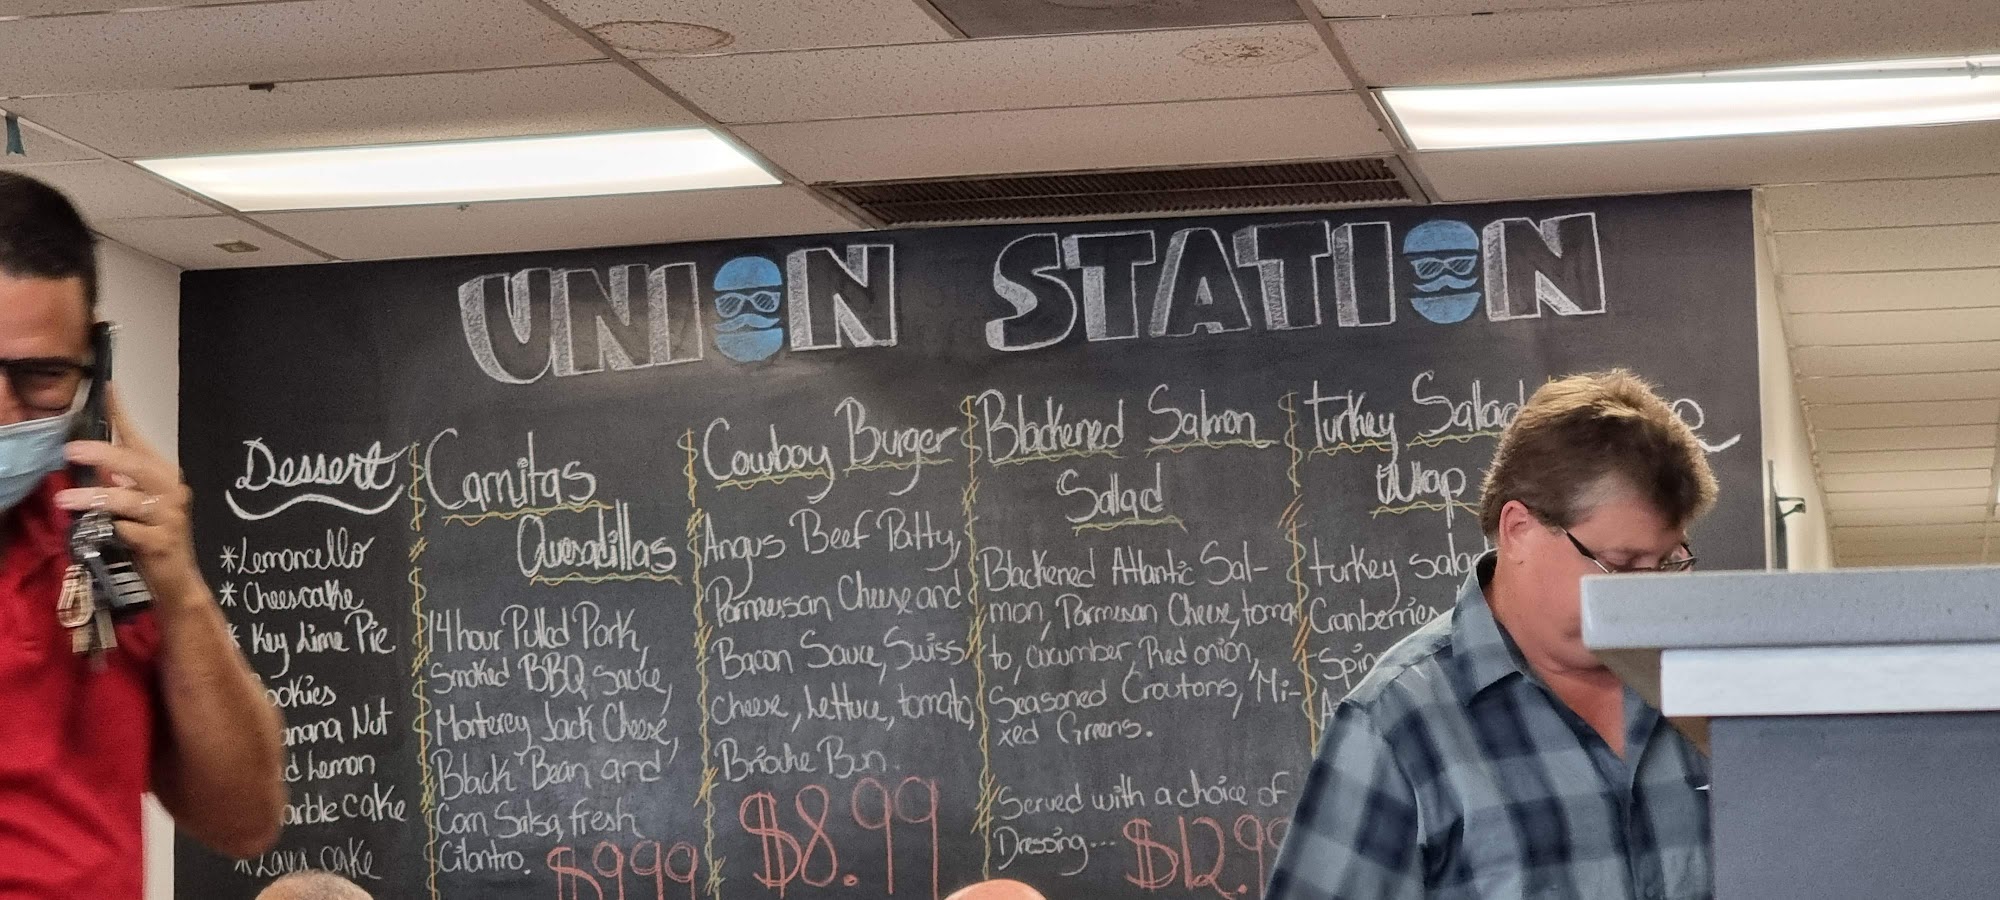 UNION STATION
Dessert
*Lemoncello
* Cheescake
* Key Lime Pie
ookies
anana Nut
d Lemon
arble cake
*Lava cake
Carnitas
Quesadillas
14 hour Pulled Pork,
Smoked BBQ sauce,
Monterey Jack Cheese,
Black Bean and
Corn Salsa, fresh
Cilantro.
$9.99
Cowboy Burger
Angus Beef Patty,
Parmesan Cheese and
Bacon Sauce, Swiss
cheese, Lettuce, tomato,
Brioche Bun.
$8.99
Blackened Salmon
Salad
Blackened Atlantic Sal-
mon, Parmesan Cheese, toma
to, cucumber, Red onion,
Seasoned Croutons, Mi-
xed Greens.
Served with a choice of
Dressing...
$12.99
Turkey Salad
Wrap
turkey salad
Cranberries
Spin
A